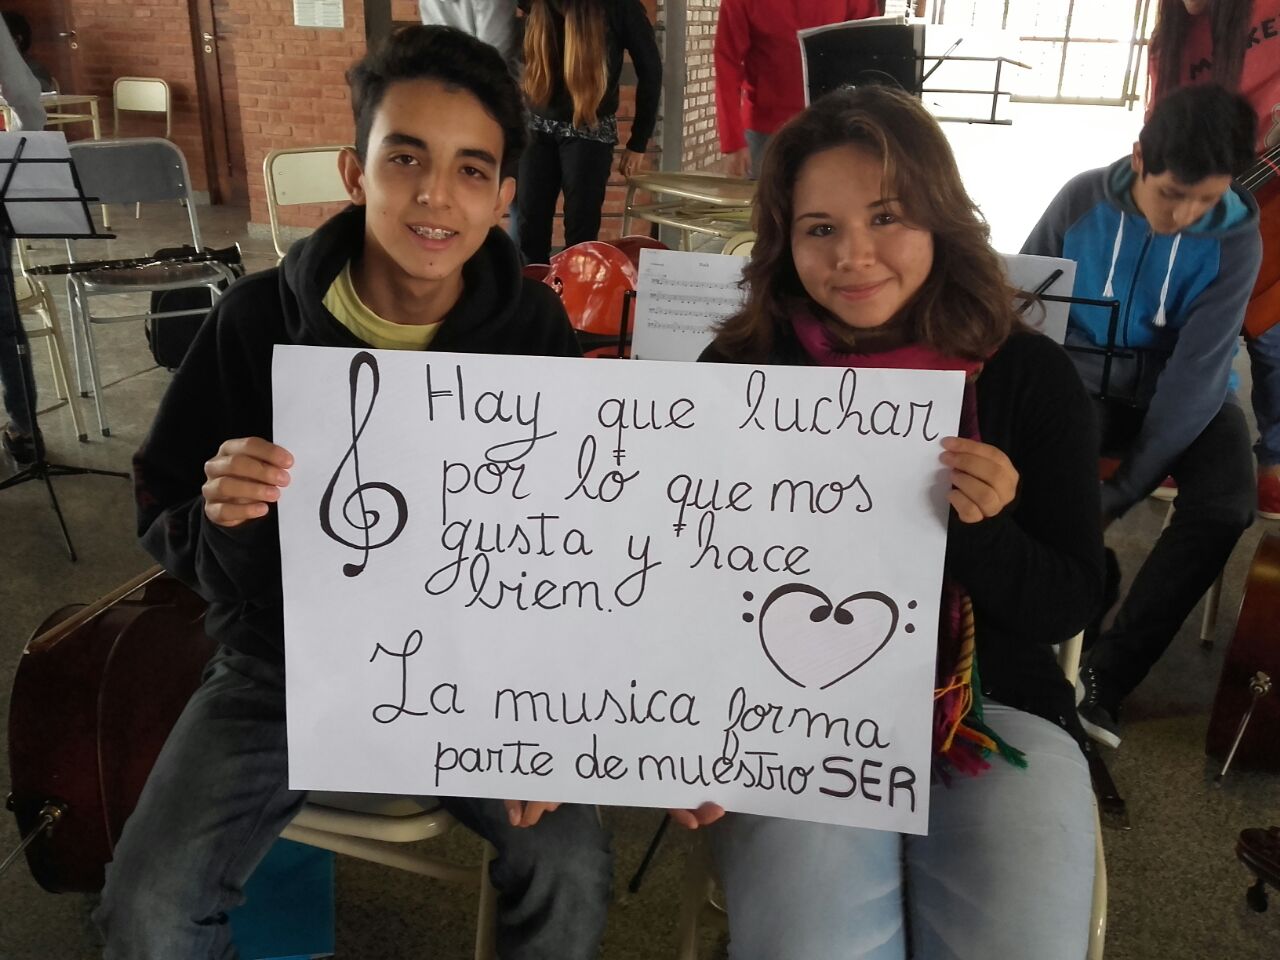 Hay que luchar
por lo que nos
gusta y hace
bien.
La musica forma
parte de nuestro SER